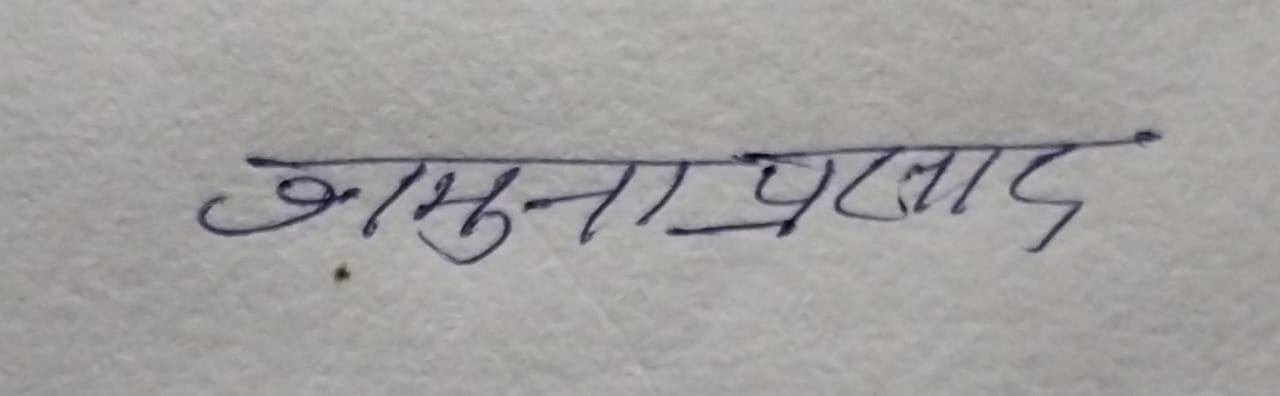 जमुना प्रसाद